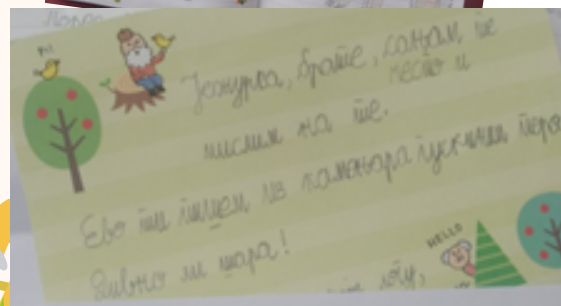 Pi
Јежурка, брате, сањам те
често и
мислим на те.
Ево ти пишем из камењара гускиним перо
Дивно ли шара!
HELLO